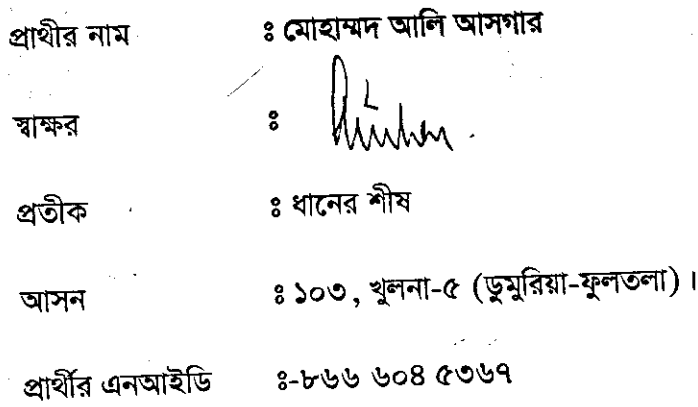 প্রার্থীর নাম : মোহাম্মদ আলি আসগার
স্বাক্ষর :
প্রতীক : ধানের শীষ
আসন : ১০৩, খুলনা-৫ (ডুমুরিয়া-ফুলতলা)।
প্রার্থীর এনআইডি :-৮৬৬ ৬০৪ ৫৩৬৭